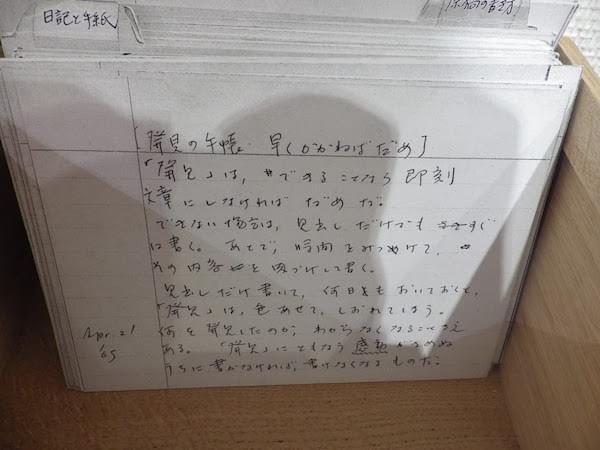 日記と手紙
[発見の手帳 早くかかねばだめ]
「発見」は、できることなら即刻
文章にしなければだめだ。
できない場合は、見出しだけでもすぐ
に書く。あとで、時間をみつけて、
その内容を肉づけして書く。
見出しだけ書いて、何日もおいておくと、
「発見」は、色あせて、しおれてしまう。
何を発見したのか、わからなくなることさえ
Apr. 21
'65
ある。「発見」にともなう感動がさめぬ
うちに書かなければ、書けなくなるものだ。